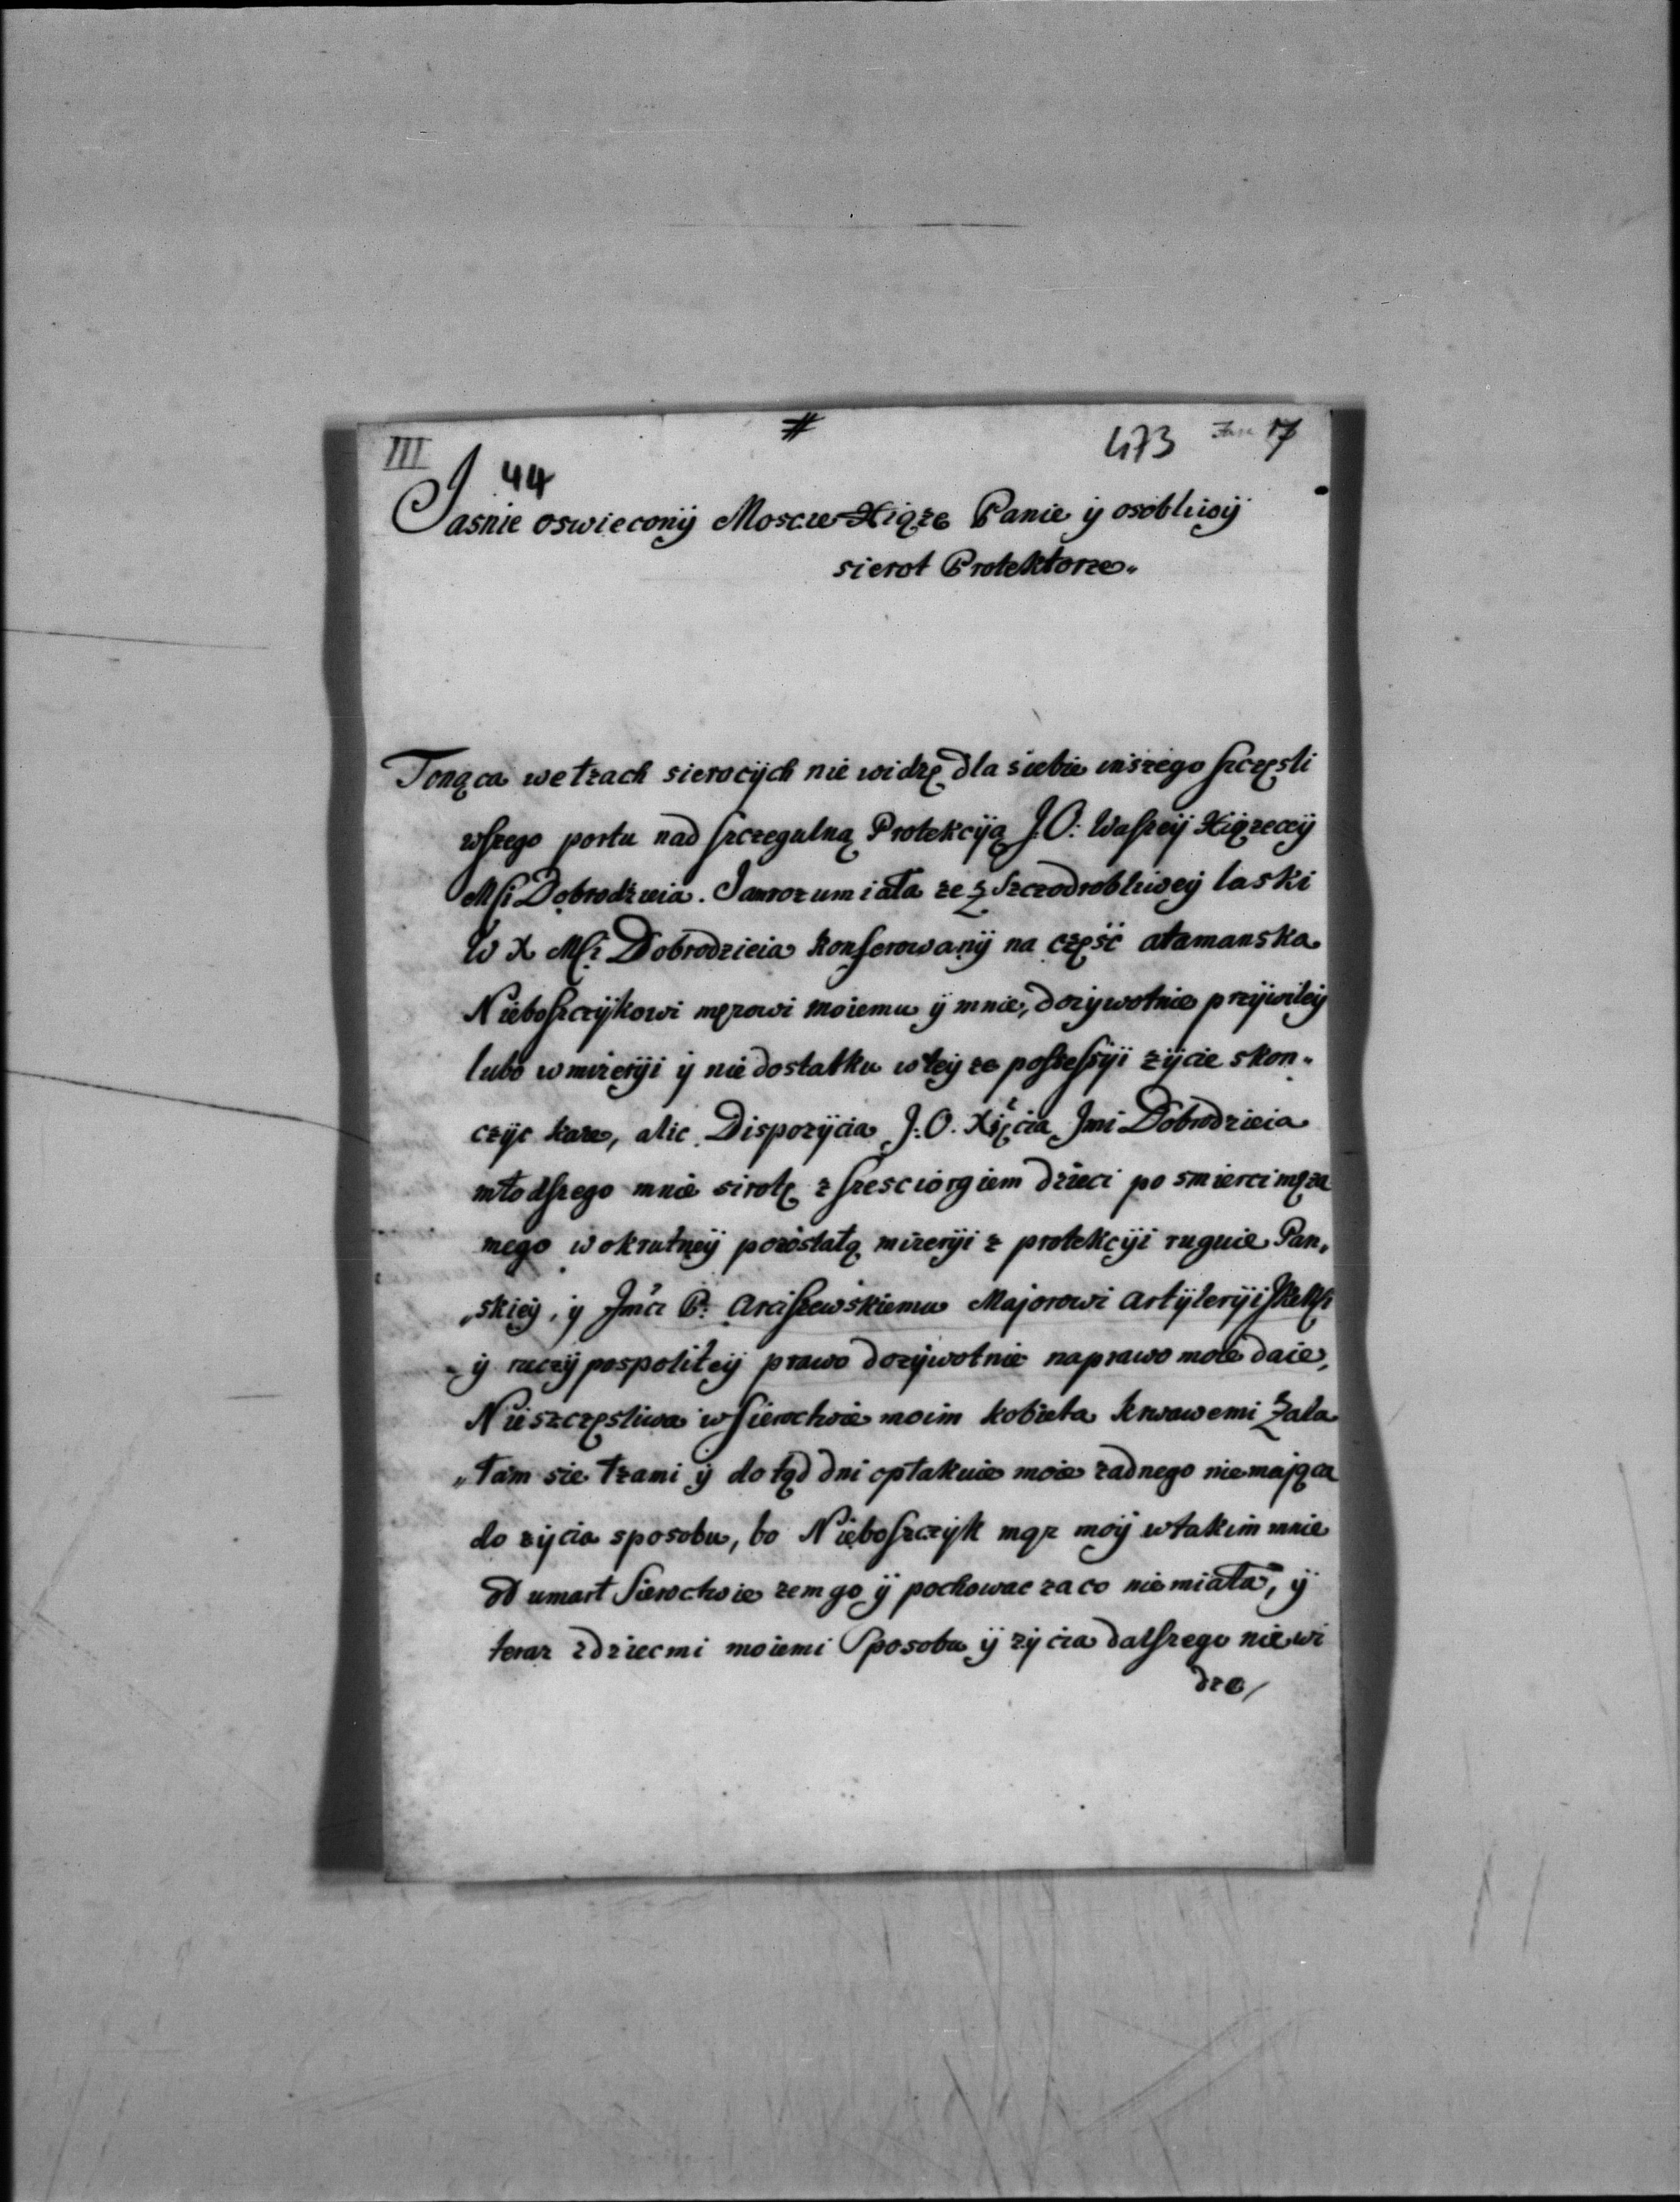 III # 473 17
44
Jasnie oswiecony Moscie Xiąże Panie ÿ osobliwÿ
sierot Protektorze„
Tonąca we łzach sierocÿch nie widzę dla siebie inszego szczęsli
wszego portu nad szczegulną Protekcÿą J: O: Waszeÿ Xiązeceÿ
Msci Dobrodzieia. Jam rozumiała ze z Szczodrobliweÿ laski
W X Msci Dobrodzieia konferowanÿ na część atamanska
Nieboszczÿkowi męzowi moiemu ÿ mnie, dozÿwotnie przÿwileÿ
lubo w mizerÿi ÿ nie dostatku w teÿ ze possessÿi zÿcie skon„
czÿc kaze, alic Dispozÿcia J: O. Xięcia Jmi Dobrodzieia
młodszego mnie sirotę z szesciorgiem dzieci po smierci męza
mego w okrutneÿ pozostałą mizerÿi z protekcÿi ruguie Pan„
„skieÿ, ÿ Jmci P: Arciszewskiemu Majorowi Artÿlerÿi
ÿ rzeczÿ pospoliteÿ prawo dozÿwotnie na prawo moie daie,
Nieszczęsliwa w Sieroctwie moim kobieta krwawemi Zala
„łam sie łzami ÿ do tąd dni opłakuie moie zadnego nie mająca
do zÿcia sposobu, bo Nieboszczÿk mąz moÿ w takim mnie
od umarł Sieroctwie zem go ÿ pochowac za co nie miała, ÿ
teraz z dziecmi moiemi Sposobu ÿ zÿcia dalszego nie wi
dze/